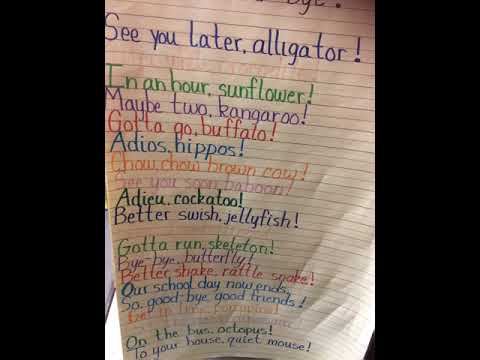 bye!
See you later, alligator!
In an hour, sunflower!
Maybe two, kangaroo!
Gotta go, buffalo!
Adios, hippos!
Chow, chow brown cow!
See you soon, baboon!
Adieu, cockatoo!
Better swish, jellyfish!
Gotta run, skeleton!
Bye-bye, butterfly!
Better shake, rattle snake!
Our school day now ends,
So, good-bye, good friends!
Get in line,
On the bus, octopus!
To your house, quiet mouse!